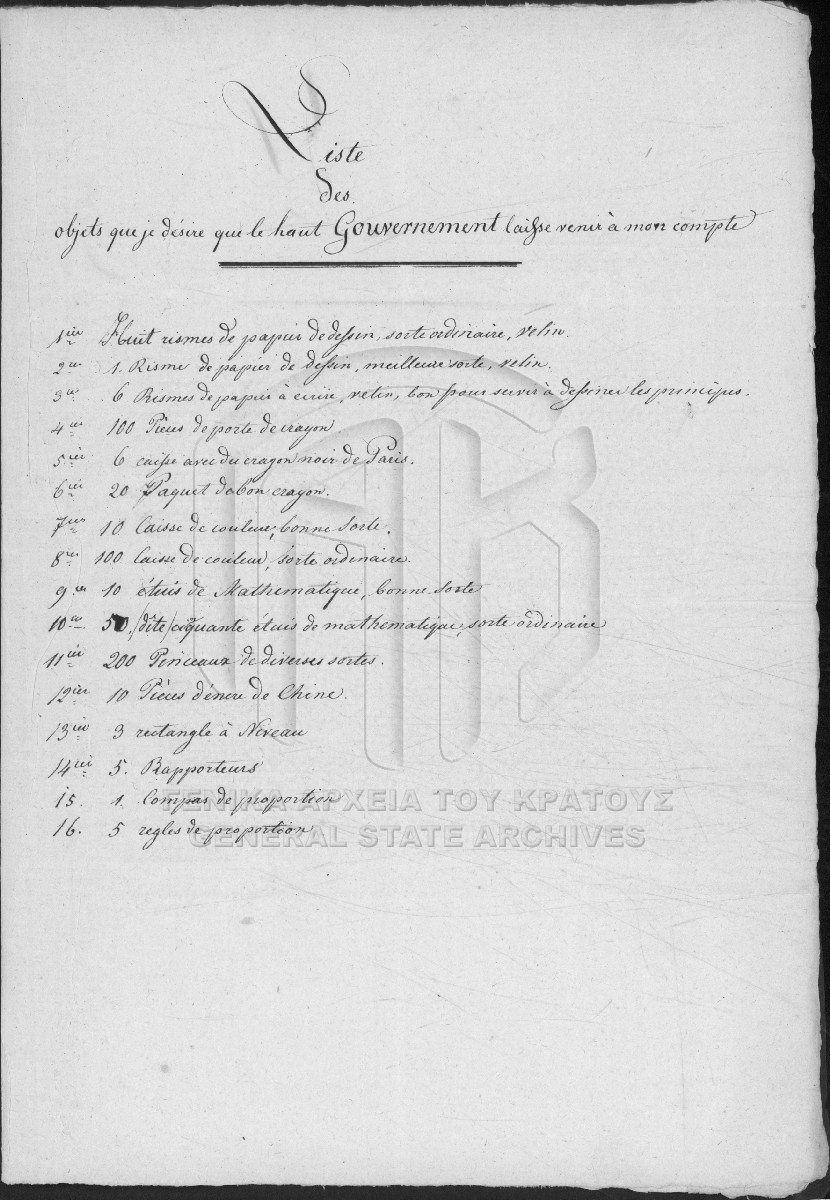 Liste
des
objets que je désire que le haut Gouvernement laisse venir à mon compte
1ier Huit rismes de papier de dessin, sorte ordinaire, velin.
2ier 1. Risme de papier de dessin, meilleure sorte, velin.
3ier 6 Rismes de papier à ecrire, velin, bon pour servir à dessiner les principes.
4ier 100 Pièces de porte de crayon
5ier 6 caisse avec du crayon noir de Paris.
6ier 20 Paquet de bon crayon.
7ier 10 Caisse de couleur, bonne sorte.
8ier 100 Caisse de couleur, sorte ordinaire.
9ier 10 étuis de Mathematique, bonne sorte
10ier 50, /dite/ ciquante étuis de mathematique, sorte ordinaire
11ier 200 Pinceaux de diverses sortes.
12ier 10 Pièces d'encre de Chine.
13ier 3 rectangle à Niveau
14ier 5. Rapporteurs
15. 1. Compas de proportion
16. 5 regles de proportion
ΓΕΝΙΚΑ ΑΡΧΕΙΑ ΤΟΥ ΚΡΑΤΟΥΣ
GENERAL STATE ARCHIVES